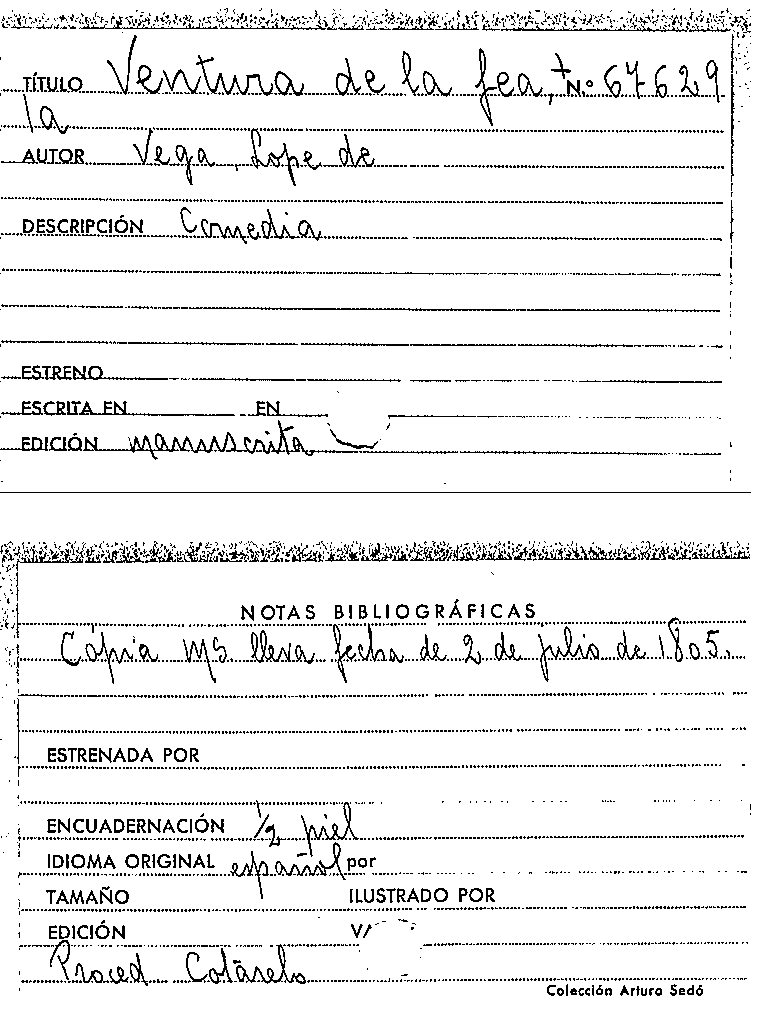 TÍTULO Ventura de la fea, + N.º 67629
la
AUTOR Vega, Lope de
DESCRIPCIÓN Comedia
ESTRENO
ESCRITA EN EN
EDICIÓN manuscrita
NOTAS BIBLIOGRÁFICAS
Cópia MS. lleva fecha de 2 de julio de 1805.
ESTRENADA POR
ENCUADERNACIÓN 1/2 piel
IDIOMA ORIGINAL español por
TAMAÑO ILUSTRADO POR
EDICIÓN
Proced. Cotarelo
Colección Arturo Sedó